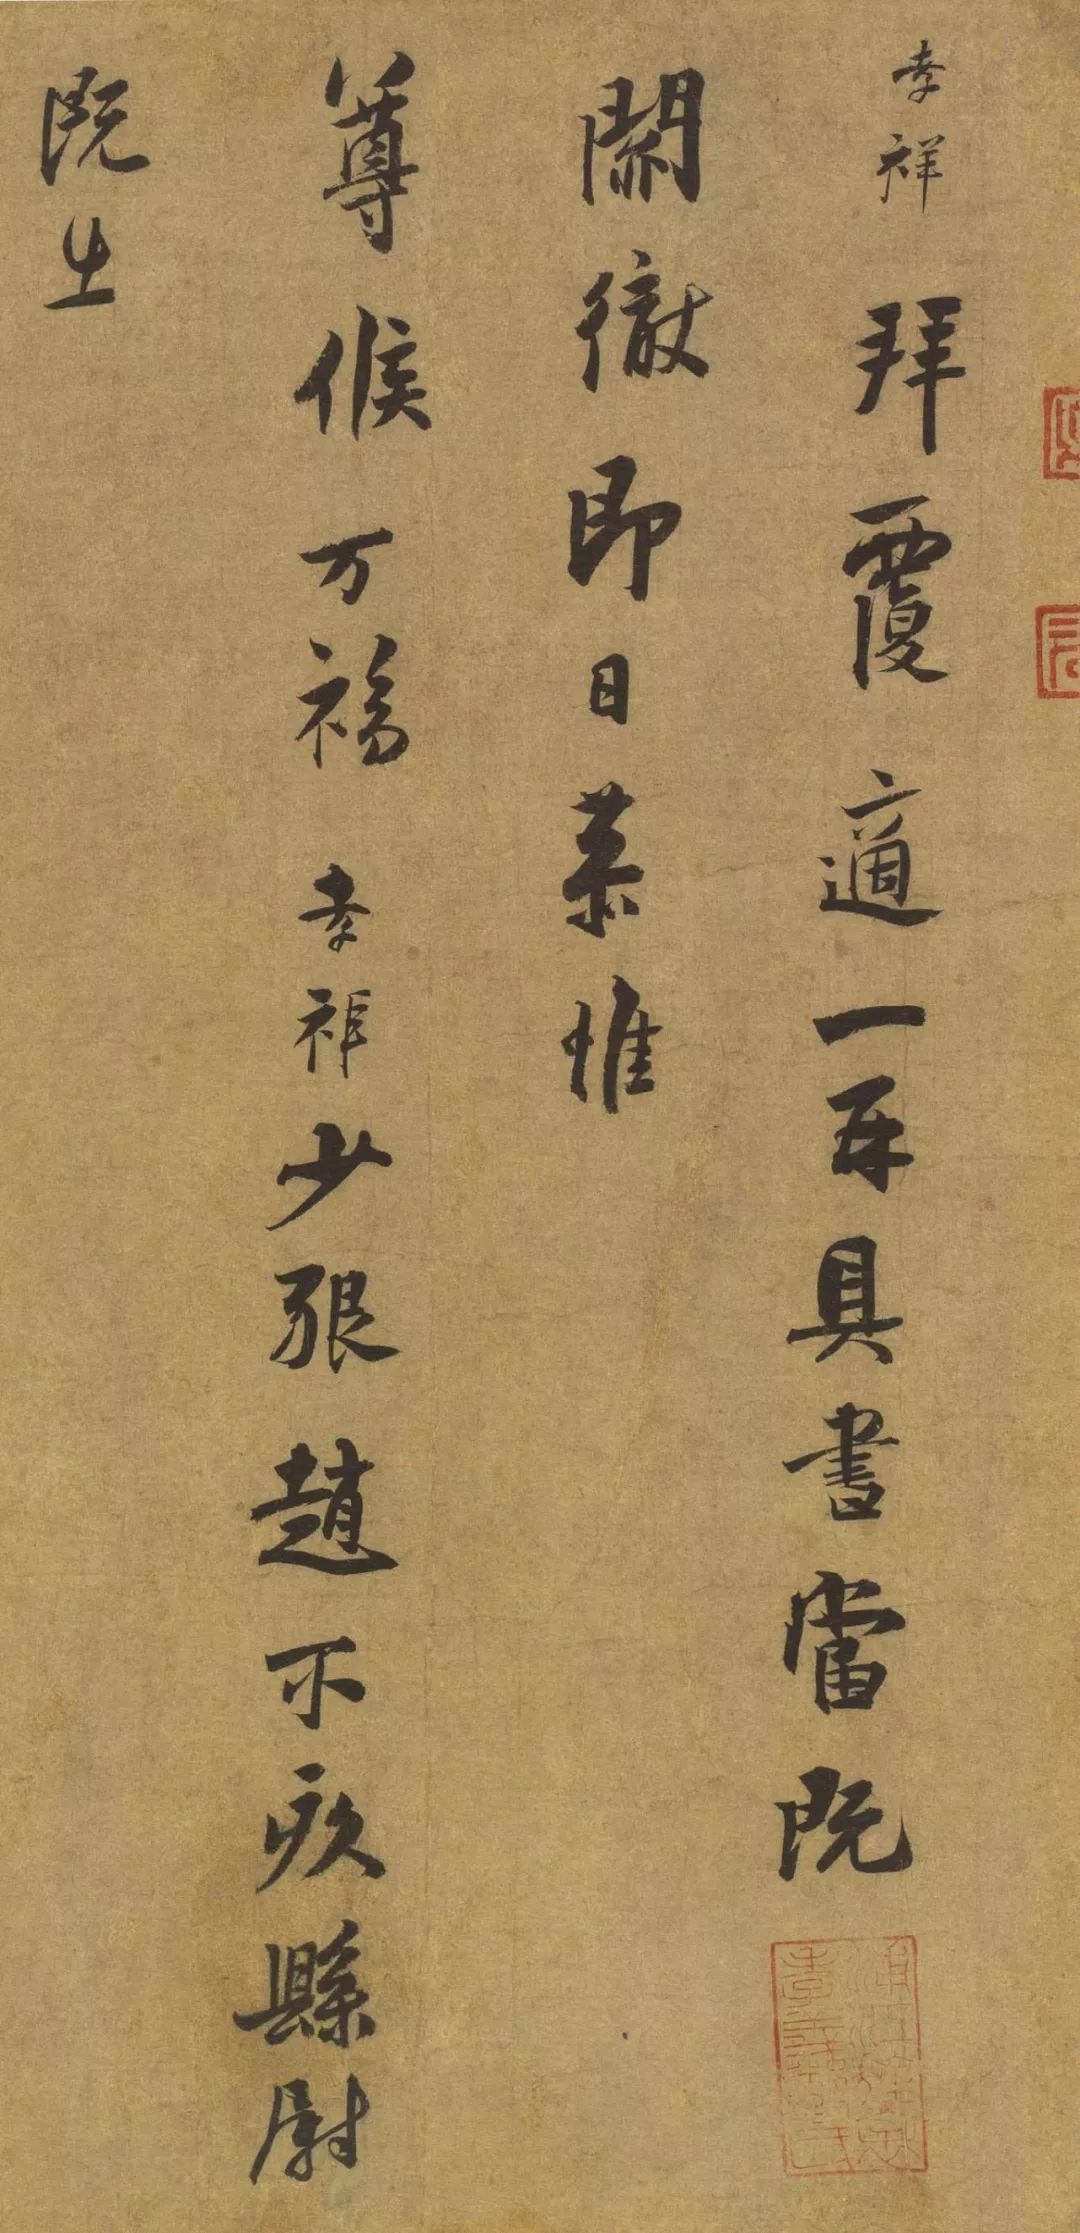 孝祥拜覆適一再具書當既
關徹即日恭惟
尊候万福孝祥少懇趙不疚縣尉
既